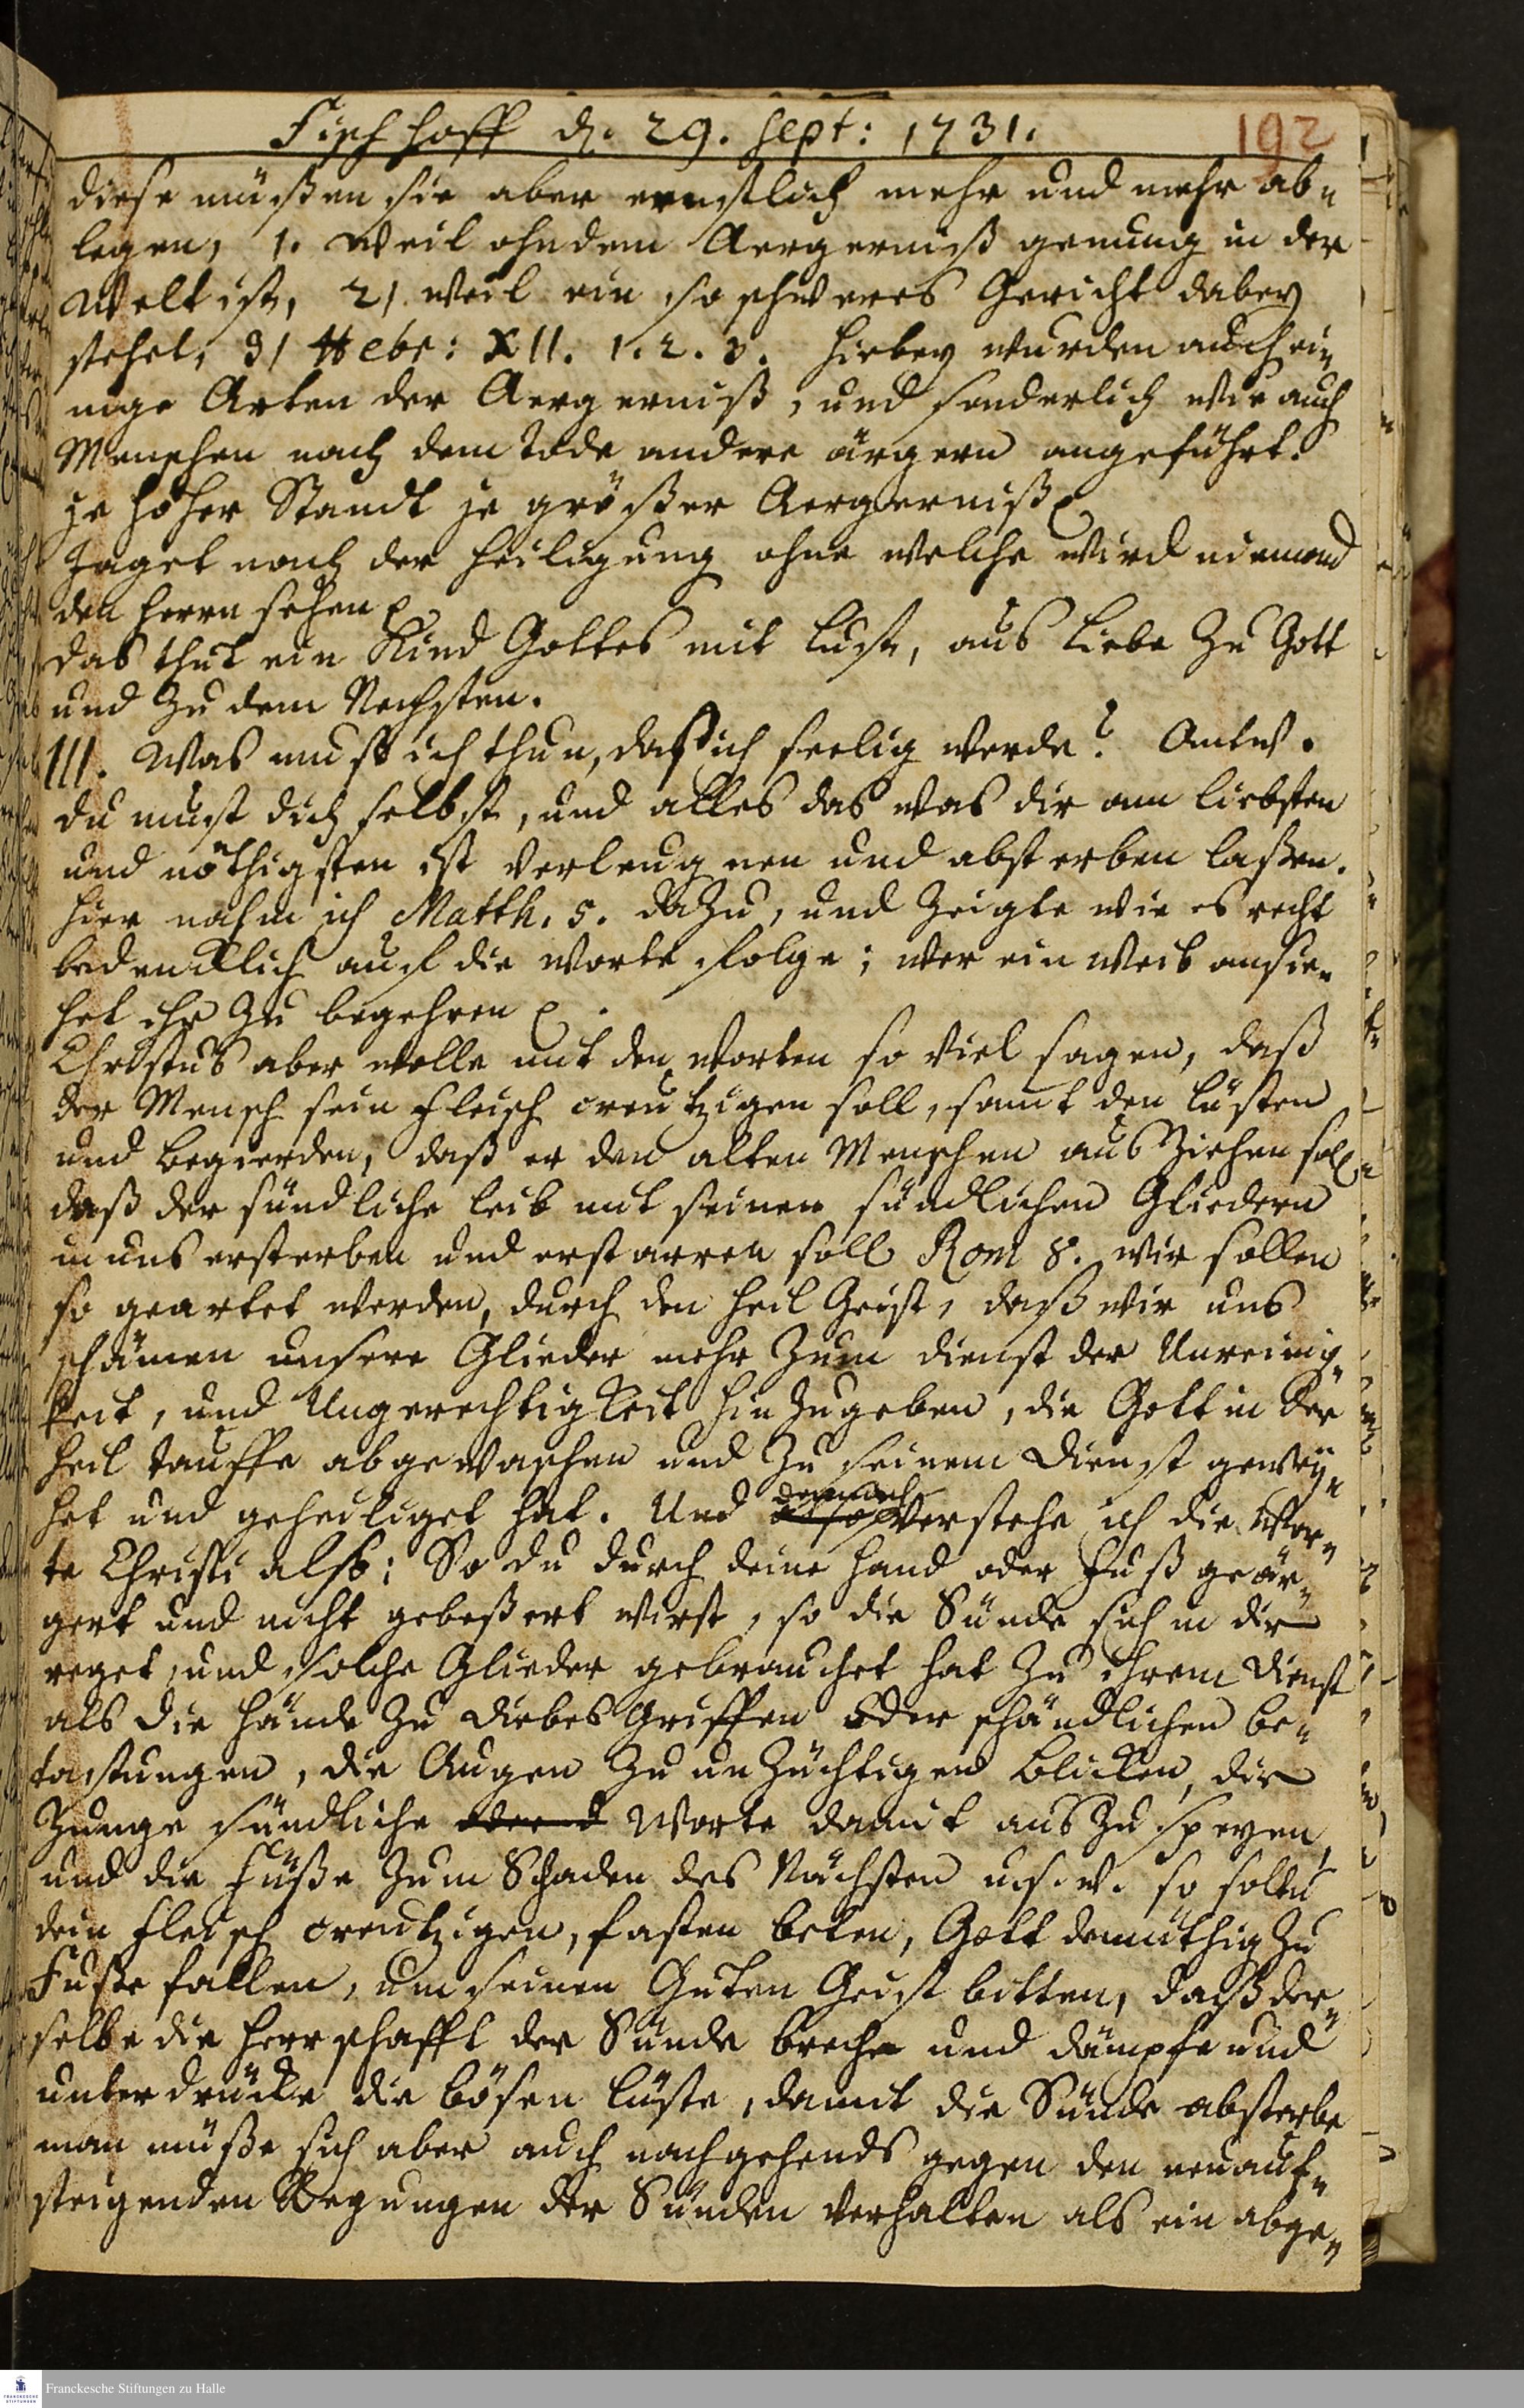 Fischhoff d. 29. Sept: 1731.
192
diese müßen sie aber ernstlich mehr und mehr ab¬
legen, 1. weil ohndem Aergerniß genung in der
Welt ist, 2) weil ein so schweres Gericht dabey
stehet, 3) Hebr: XII. 1. 2. 3. Hiebey wurden auch ei¬
nige Arten der Aergerniß, und sonderlich wie auch
Menschen nach dem Tode andere ärgern angeführt.
je höher Standt je größer Aergerniß
Jaget nach der Heiligung ohne welche wird niemand
den Herrn sehen
das thut ein Kind Gottes mit Lust, aus Liebe zu Gott
und zu dem Nechsten.
III. Was muß ich thun, daß ich seelig werde? Antw.
du must dich selbst, und alles das was dir am liebsten
und nöthigsten ist verleugnen und absterben laßen.
Hier nahm ich Matth. 5. dazu, und zeigte wie es recht
bedencklich auf die Worte folge; wer ein Weib ansie¬
het ihr zu begehren
Christus aber wolle mit den Worten so viel sagen, daß
der Mensch sein Fleisch creutzigen soll, samt den Lüsten
und Begierden, daß er den alten Menschen ausziehen soll
daß der sündliche Leib mit seinen sündlichen Gliedern
in uns ersterben und erstarren soll Rom 8. wir sollen
so geartet werden, durch den Heil Geist, daß wir uns
schämen unsere Glieder mehr zum Dienst der Unreinig¬
keit, und Ungerechtigkeit hinzugeben, die Gott in der
Heil Tauffe abgewaschen und zu seinem Dienst gewey¬
het und geheiliget hat. Und also demnach verstehe ich die Wor¬
te Christi also: So du durch deine Hand oder Fuß geär¬
gert und nicht gebeßert wirst, so die Sünde sich in dir
reget, und solche Glieder gebrauchet hat zu ihrem Dienst
als die Hände zu Diebes Griffen oder schändlichen be¬
tastungen, die Augen zu unzüchtigen Blicken, die
Zunge sündliche oder Worte damit auszuspeyen,
und die Füße zum Schaden des Nächsten u.s.w. so soltu
dein Fleisch creutzigen, fasten beten, Gott demüthig zu
Fuße fallen, um seinen Guten Geist bitten, daß der¬
selbe die Herrschafft der Sünde breche und dämpfe und
unterdrücke die bösen Lüste, damit die Sünde absterbe
man müße sich aber auch nachgehends gegen den neuauf¬
steigenden Regungen der Sünden verhalten als ein abge¬
Franckesche Stiftungen zu Halle